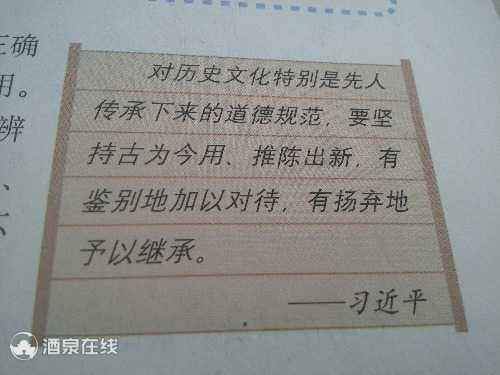 正确
用。
辨
、
对历史文化特别是先人
传承下来的道德规范，要坚
持古为今用、推陈出新，有
鉴别地加以对待，有扬弃地
予以继承。
——习近平
酒泉在线